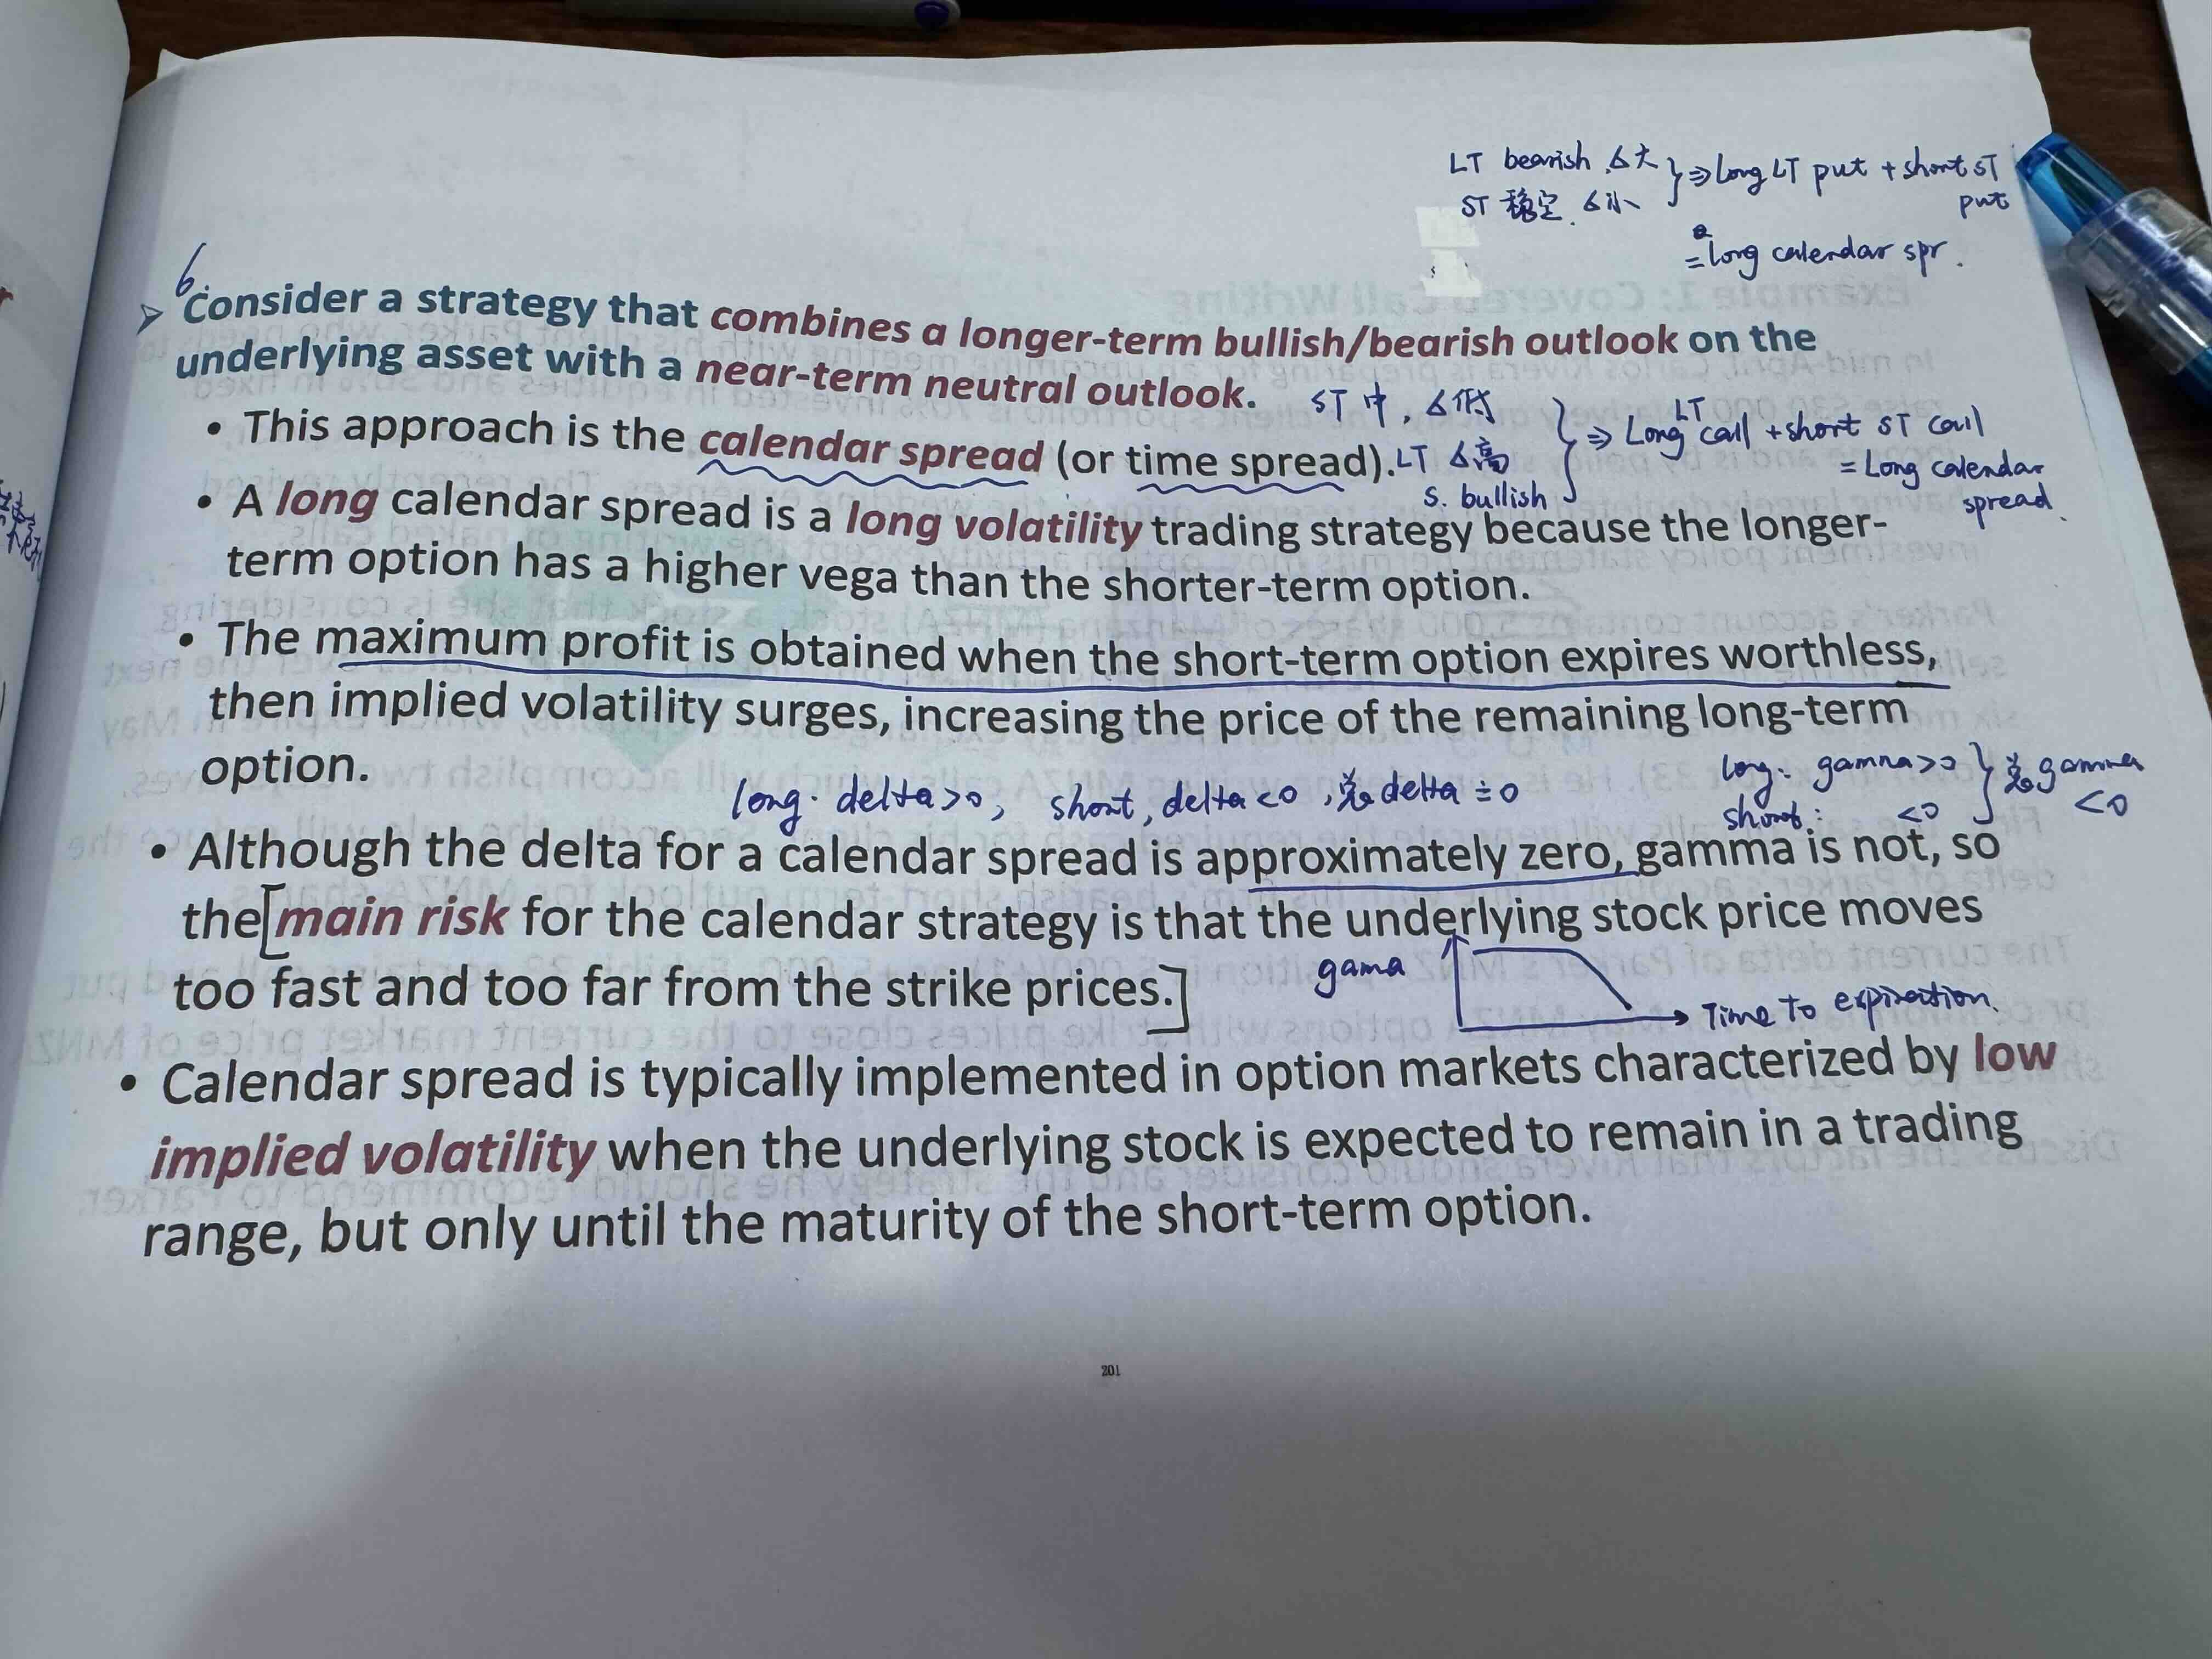 LT bearish △大
ST 稳定. △小
} ⇒ long LT put + short ST
put
= long calendar spr.
6.
➢ Consider a strategy that combines a longer-term bullish/bearish outlook on the
underlying asset with a near-term neutral outlook.
ST 中, △低
• This approach is the calendar spread (or time spread).
LT △高
S. bullish
} ⇒ Long LT call + short ST call
= Long calendar
spread.
• A long calendar spread is a long volatility trading strategy because the longer-
term option has a higher vega than the shorter-term option.
• The maximum profit is obtained when the short-term option expires worthless,
then implied volatility surges, increasing the price of the remaining long-term
option.
long. delta>0, short, delta<0, 总 delta ≐ 0
long: gamma>0
short: <0
} 总 gamma
<0
• Although the delta for a calendar spread is approximately zero, gamma is not, so
the [main risk for the calendar strategy is that the underlying stock price moves
too fast and too far from the strike prices.]
gama
Time to expiration.
• Calendar spread is typically implemented in option markets characterized by low
implied volatility when the underlying stock is expected to remain in a trading
range, but only until the maturity of the short-term option.
201